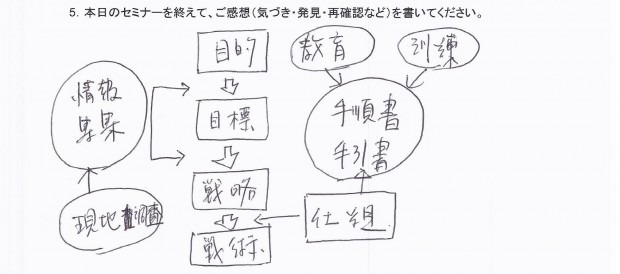 5. 本日のセミナーを終えて、ご感想（気づき・発見・再確認など）を書いてください。
目的
教育
訓練
情報
目標
手順書
手引書
戦略
現地調査
仕組
戦術